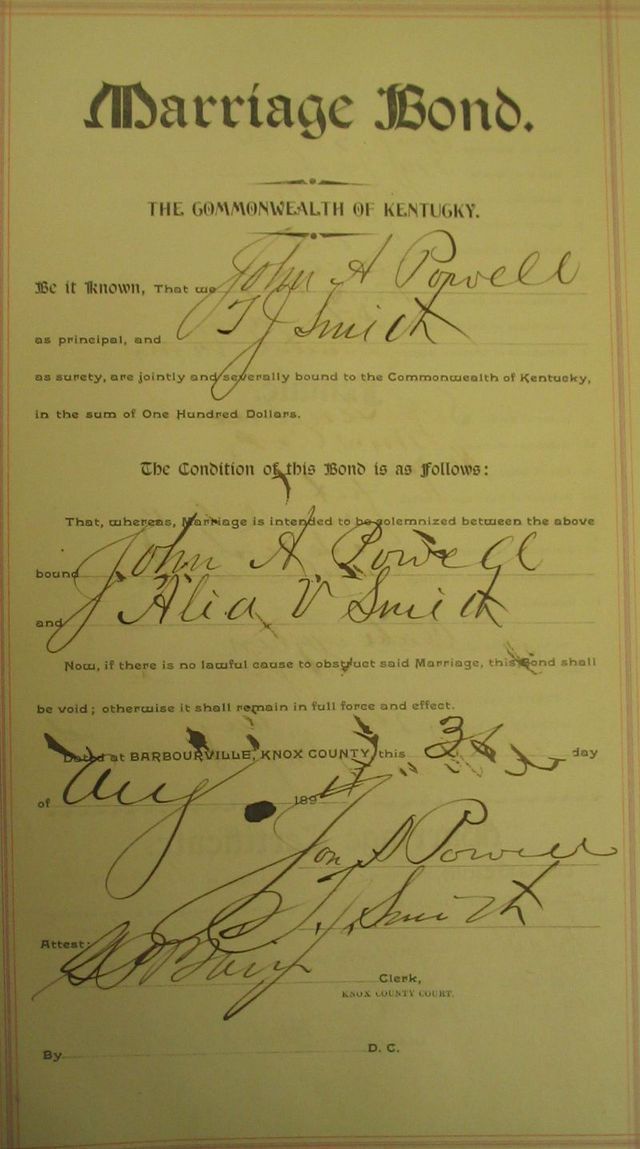 Marriage Bond.
THE COMMONWEALTH OF KENTUCKY.
Be it Known, That we John A Powell
as principal, and T J Smith
as surety, are jointly and severally bound to the Commonwealth of Kentucky,
in the sum of One Hundred Dollars.
The Condition of this Bond is as Follows:
That, whereas, Marriage is intended to be solemnized between the above
bound John A Powell
and Alia V Smith
Now, if there is no lawful cause to obstruct said Marriage, this Bond shall
be void; otherwise it shall remain in full force and effect.
Dated at BARBOURVILLE, KNOX COUNTY, this day
of Aug 189
Powell
T. J. Smith
Attest:
Clerk,
KNOX COUNTY COURT.
By D. C.